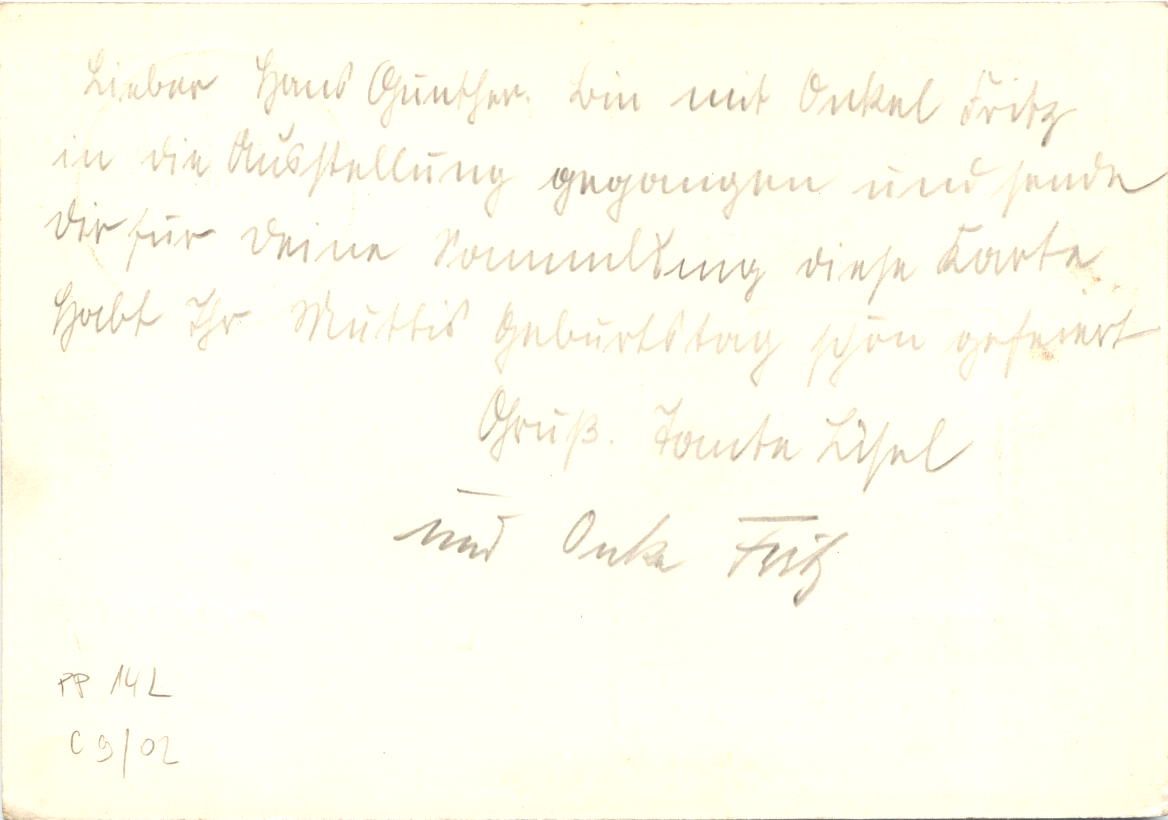 Lieber Hans Günther. Bin mit Onkel Fritz
in die Ausstellung gegangen und sende
dir für deine Sammlung diese Karte
Habt Ihr Muttis Geburtstag schön gefeiert
Gruß. Tante Lisel
und Onke Fritz
PP 14 L
C 9/02